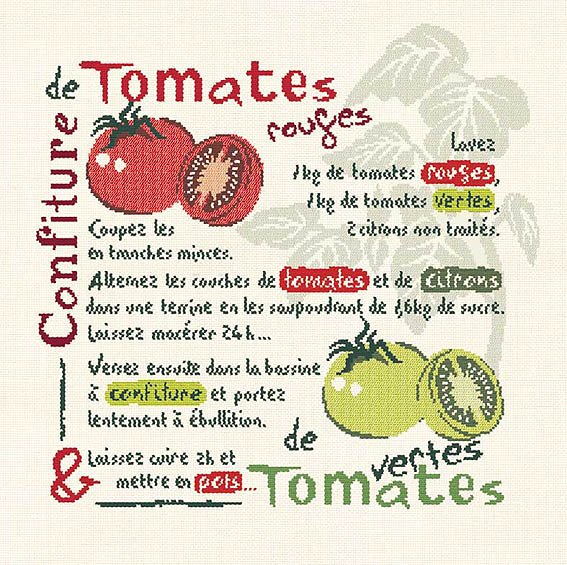 Confiture
de Tomates
rouges
Lavez
1kg de tomates rouges,
1kg de tomates vertes,
2 citrons non traités.
Coupez les
en tranches minces.
Alternez les couches de tomates et de citrons
dans une terrine en les saupoudrant de 1,6kg de sucre.
Laissez macérer 24h...
Versez ensuite dans la bassine
à confiture et portez
lentement à ébullition.
Laissez cuire 2h et
mettre en pots...
&
de
vertes
Tomates